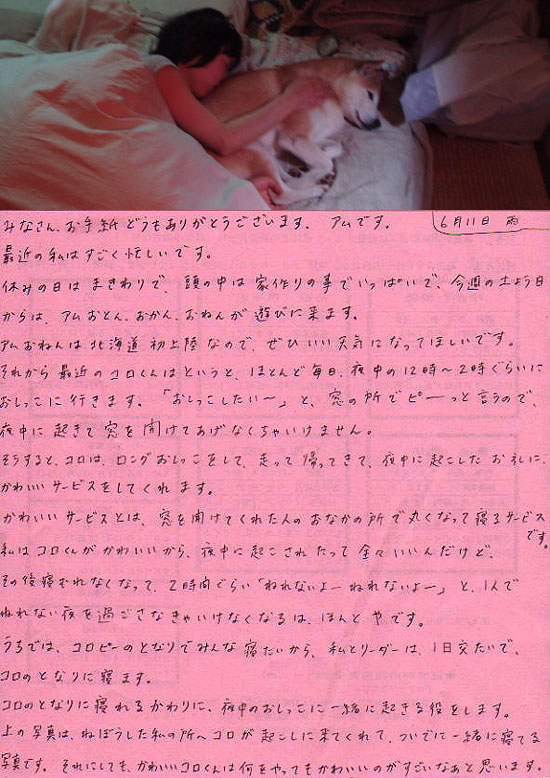 みなさん、お手紙どうもありがとうございます。 アムです。
6月11日 雨
最近の私はすごく忙しいです。
休みの日はまきわりで、頭の中は家作りの事でいっぱいで、今週の土よう日
からは、アムおとん、おかん、おねんが遊びに来ます。
アムおねんは北海道初上陸なので、ぜひいい天気になってほしいです。
それから最近のコロくんはというと、ほとんど毎日、夜中の12時〜2時ぐらいに
おしっこに行きます。「おしっこしたい〜」と、窓の所でピーっと言うので、
夜中に起きて窓を開けてあげなくちゃいけません。
そうすると、コロは、ロングおしっこをして、走って帰ってきて、夜中に起こしたお礼に、
かわいいサービスをしてくれます。
かわいいサービスとは、窓を開けてくれた人のおなかの所で丸くなって寝るサービス
です。
私はコロくんがかわいいから、夜中に起こされたって全々いいんだけど、
その後寝むれなくなって、2時間ぐらい「ねれないよーねれないよー」と、1人で
ねれない夜を過ごさなきゃいけなくなるは、ほんとやです。
うちでは、コロピーのとなりでみんな寝たいから、私とリーダーは、1日交たいで、
コロのとなりに寝ます。
コロのとなりに寝れるかわりに、夜中のおしっこに一緒に起きる役をします。
上の写真は、ねぼうした私の所へコロが起こしに来てくれて、ついでに一緒に寝てる
写真です。それにしても、かわいいコロくんは何をやってもかわいいのがすごいなあと思います。